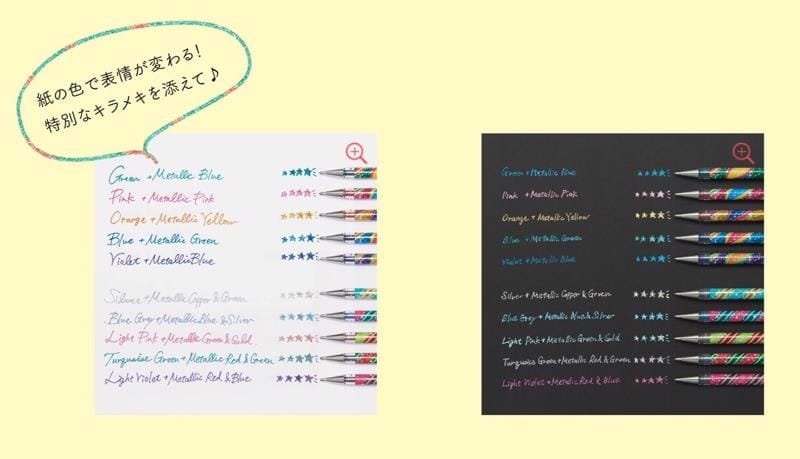 紙の色で表情が変わる!
特別なキラメキを添えて♪
Green + Metallic Blue
Pink + Metallic Pink
Orange + Metallic Yellow
Blue + Metallic Green
Violet + Metallic Blue
Silver + Metallic Copper & Green
Blue Grey + Metallic Blue & Silver
Light Pink + Metallic Green & Gold
Turquoise Green + Metallic Red & Green
Light Violet + Metallic Red & Blue
Green + Metallic Blue
Pink + Metallic Pink
Orange + Metallic Yellow
Blue + Metallic Green
Violet + Metallic Blue
Silver + Metallic Copper & Green
Blue Grey + Metallic Blue & Silver
Light Pink + Metallic Green & Gold
Turquoise Green + Metallic Red & Green
Light Violet + Metallic Red & Blue